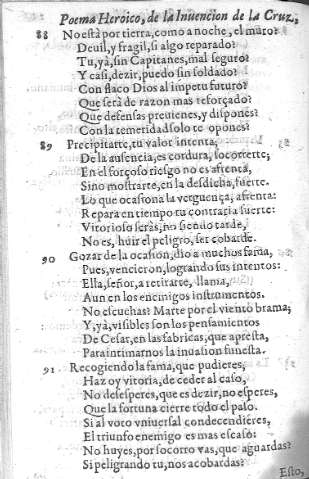 Poema Heroico, de la Inuencion de la Cruz.,
88 No està por tierra, como a noche, el muro?
Deuil, y fragil, si algo reparado?
Tu, yà, sin Capitanes, mal seguro?
Y casi, dezir, puedo sin soldado?
Con flaco Dios al impetu futuro?
Que serà de razon mas reforçado?
Que defensas preuienes, y dispones?
Con la temeridad solo te opones?
89 Precipitarte, tu valor intenta,
De la ausencia, es cordura, socorrerte;
En el forçoso riesgo no es afrenta,
Sino mostrarte, en la desdicha, fuerte.
Lo que ocasiona la verguença, afrenta:
Repara en tiempo tu contraria suerte:
Vitorioso seràs, no siendo tarde,
No es, huir el peligro, ser cobarde.
90 Gozar de la ocasion, dio a muchos fama,
Pues, vencieron, logrando sus intentos:
Ella, señor, a retirarte, llama,
Aun con los enemigos instrumentos.
No escuchas? Marte por el viento brama;
Y, yà, visibles son los pensamientos
De Cesar, en las fabricas, que apresta,
Para intimarnos la inuasion funesta.
91 Recogiendo la fama, que pudieres,
Haz oy vitoria, de ceder al caso,
No desesperes, que es dezir, no esperes,
Que la fortuna cierre todo el paso.
Si al voto vniuersal condecendieres,
El triunfo enemigo es mas escaso:
No huyes, por socorro vas, que aguardas?
Si peligrando tu, nos acobardas?
Esto,